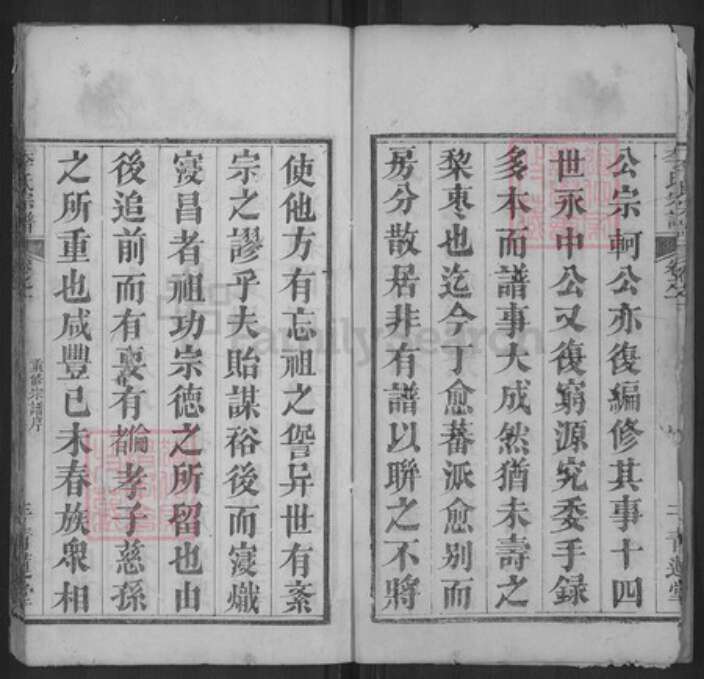 公宗軻公亦復編修其事十四
世永中公又復窮源究委手錄
多本而譜事大成然猶未壽之
棃枣也迄今丁愈蕃派愈別而
房分散居非有譜以聯之不將
使他方有忘祖之訾异世有紊
宗之謬乎夫貽謀裕後而寖熾
寖昌者祖功宗德之所留也由
後追前而有要有倫者孝子慈孫
之所重也咸豐己未春族衆相
李氏宗譜
重修宗譜序
familysearch